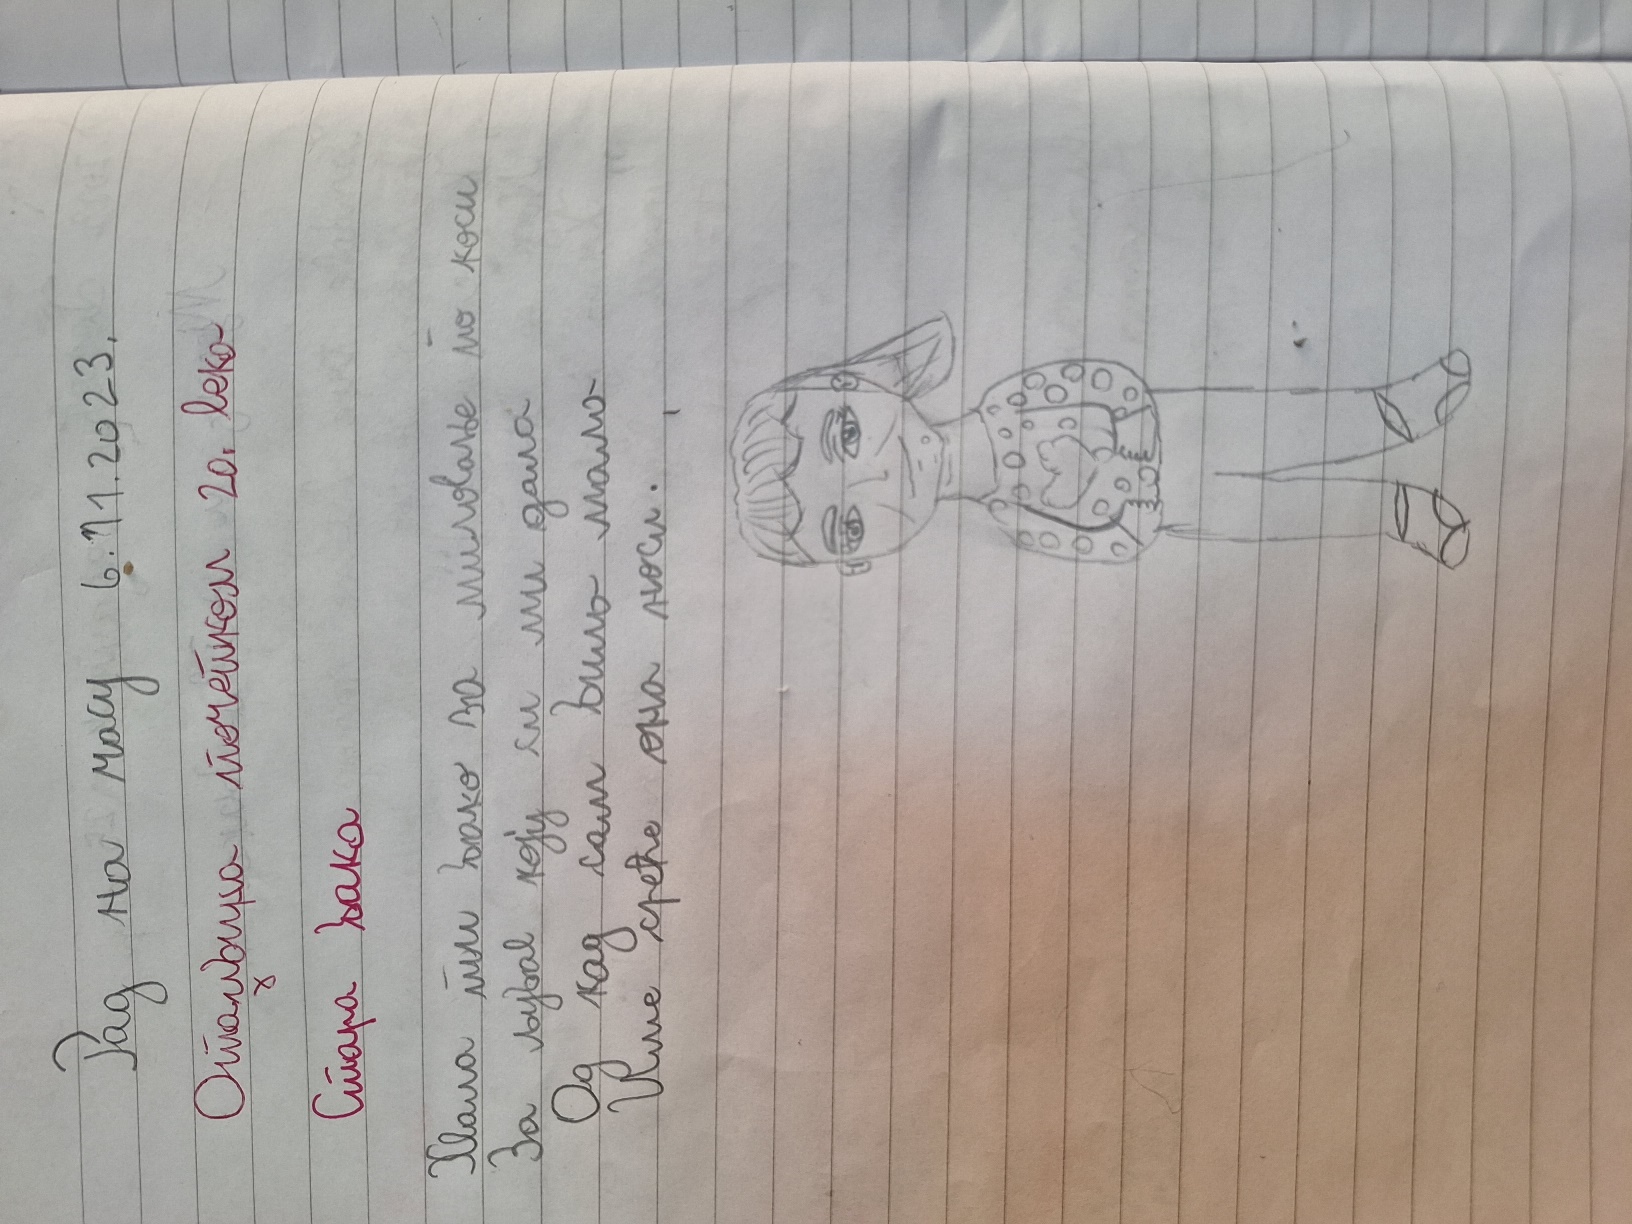 Рад на часу 6.11.2023.
Отаџбина почетком 20. века
Стара бака
Хвала ти бако за миловање по коси
За љубав коју си ми дала
Од кад сам била мала
Име среће она носи.